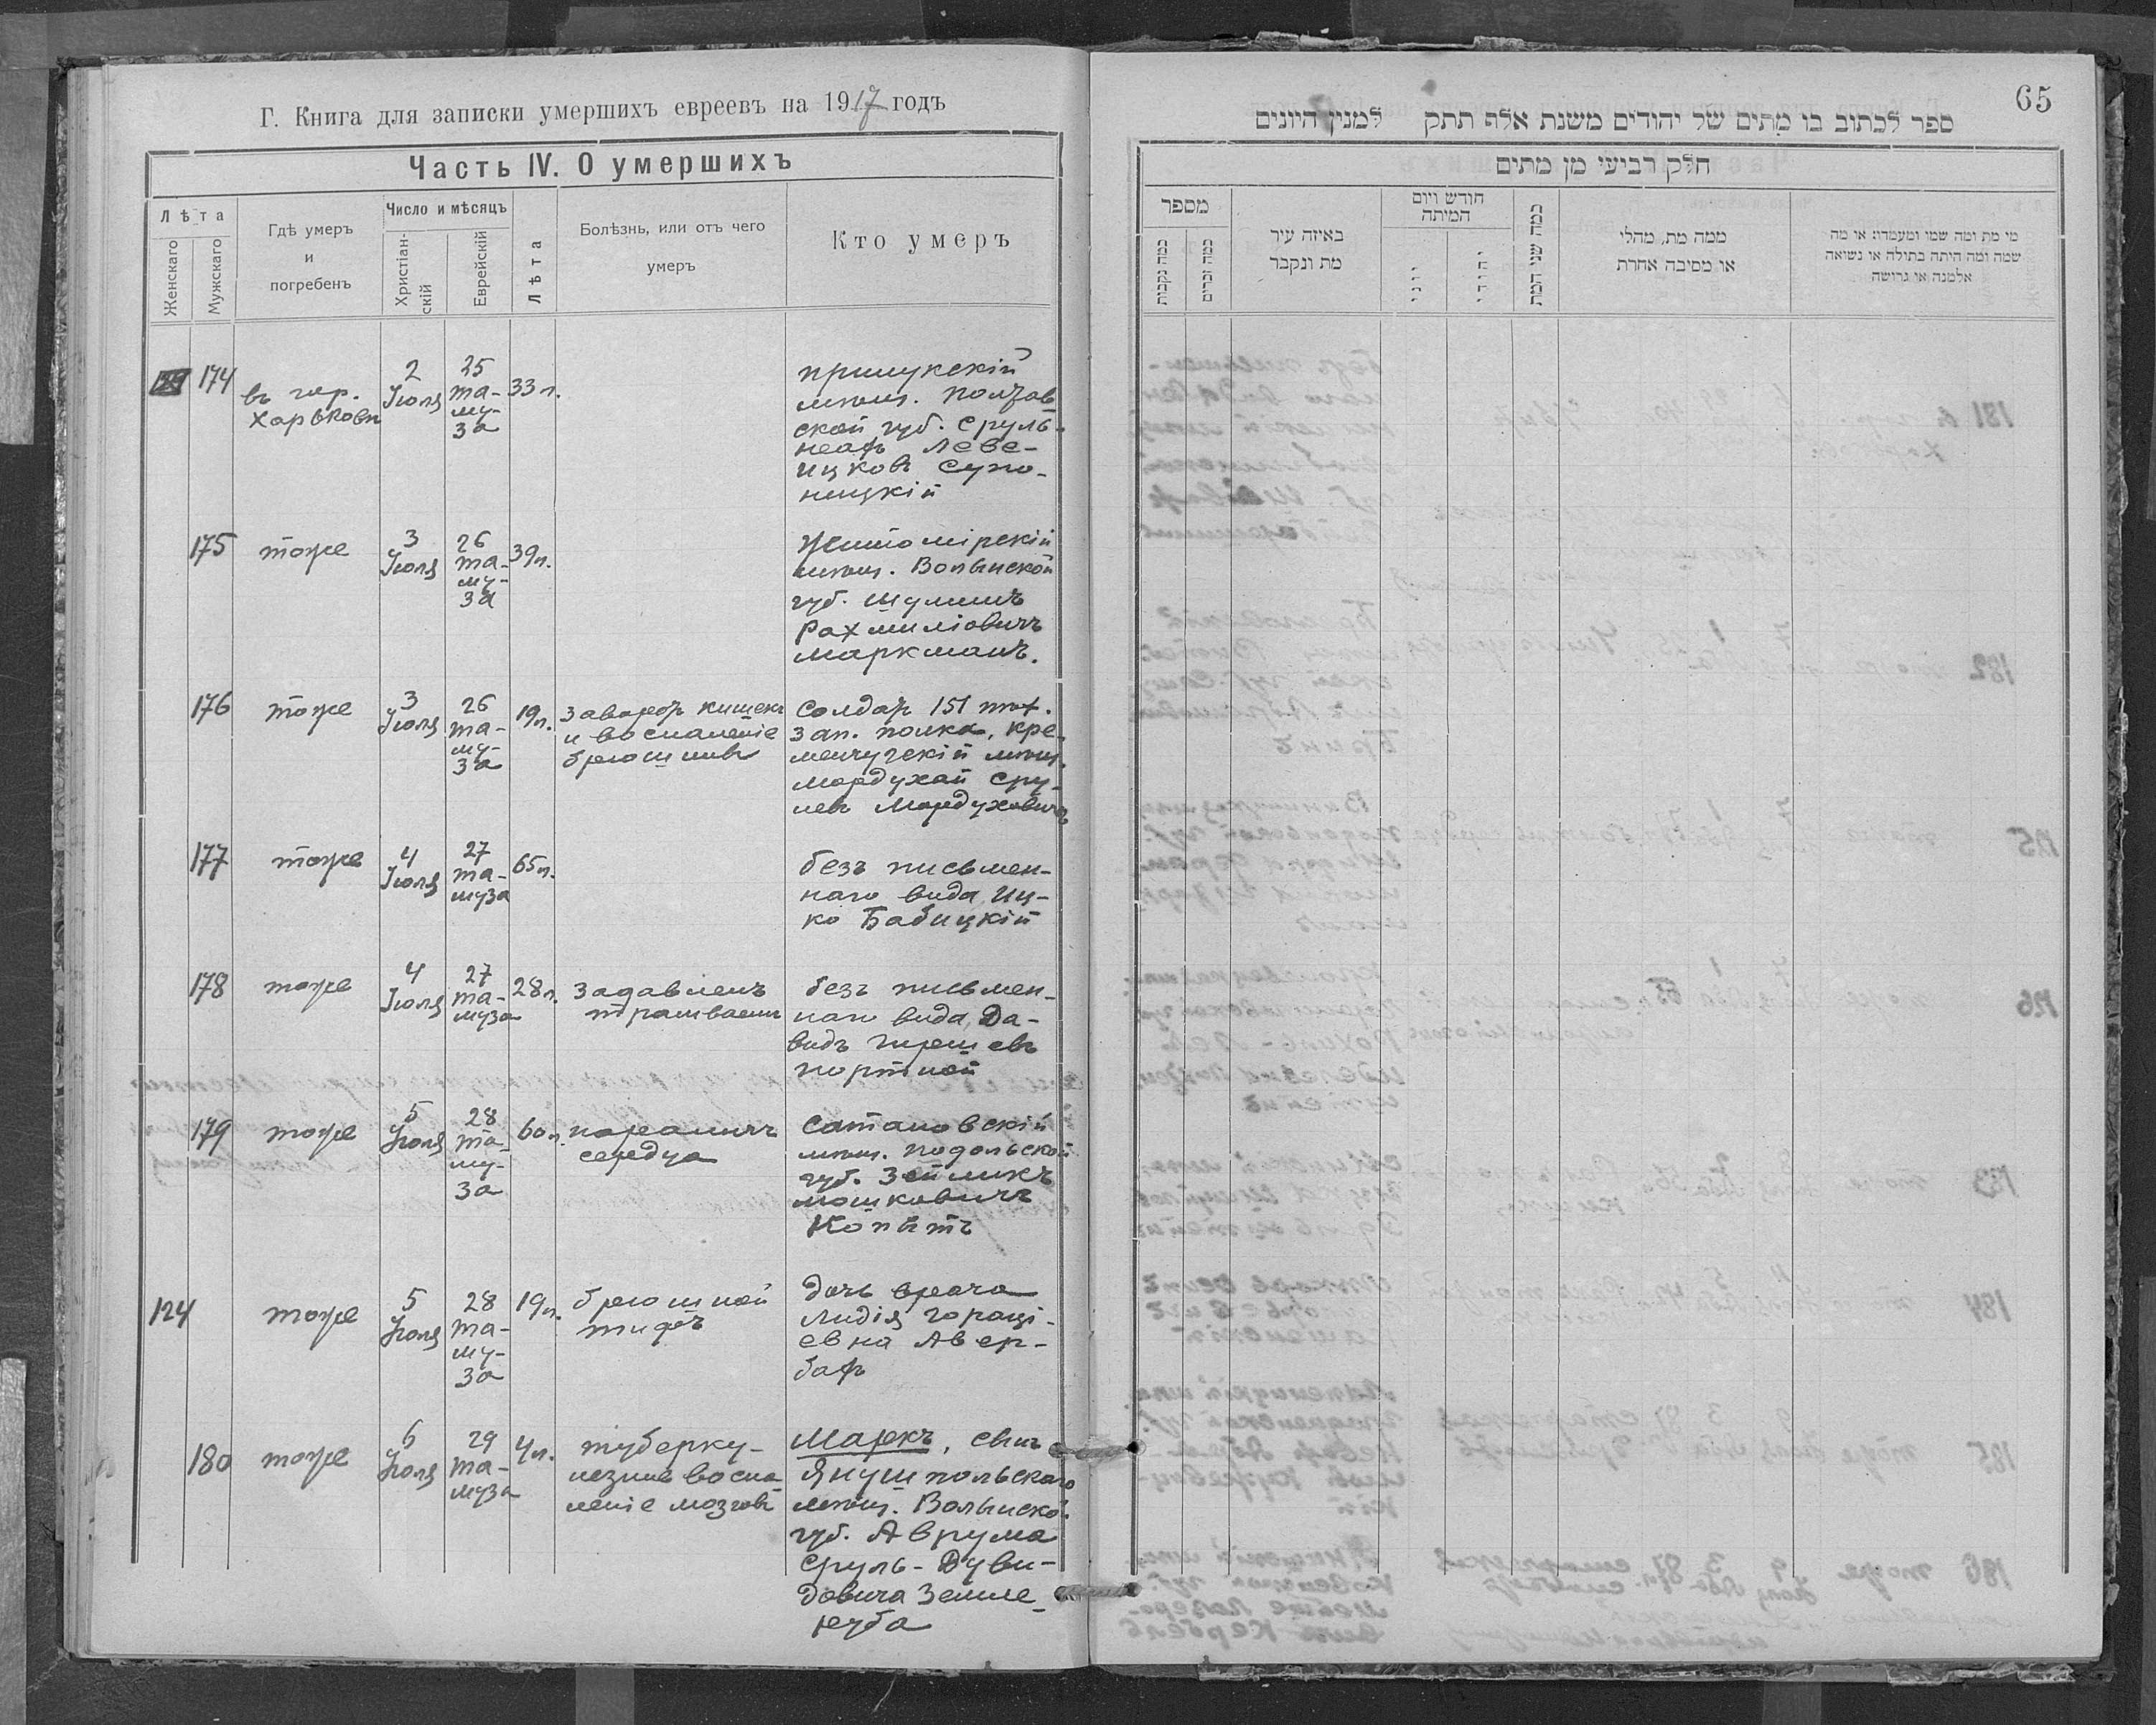 Г. Книга для записки умершихъ евреевъ на 1917 годъ
Часть IV. О умершихъ
Лѣта
Женскаго
Мужскаго
Гдѣ умеръ
и
погребенъ
Число и мѣсяцъ
Христіан-
скій
Еврейскій
Лѣта
Болѣзнь, или отъ чего
умеръ
Кто умеръ
174
въ гор.
Харьковѣ
2
Іюля
25
та-
му-
за
33 л.
прилукскій
мѣщ. Полтав
ской губ. Сруль-
Лейб-
ицковъ
ницкій
175
тоже
3
Іюля
26
та-
му-
за
39 л.
Житомірскій
мѣщ. Волынской
губ. Шулимъ
Рахмиліовичъ
Маркманъ.
176
тоже
3
Іюля
26
та-
му-
за
19 л.
заворотъ кишекъ
и воспаленіе
брюшины
Солдатъ 151 пѣх.
зап. полка, Кре-
менчугскій мѣщ.
Мордухай Сру-
левъ Мордуховичъ
177
тоже
4
Іюля
27
та-
муза
65 л.
безъ письмен-
наго вида, Иц-
ко Бабицкій
178
тоже
4
Іюля
27
та-
муза
28 л.
задавленъ
трамваемъ
безъ письмен-
наго вида, Да-
видъ Гиршевъ
Портной
179
тоже
5
Іюля
28
та-
му-
за
60 л.
параличъ
сердца
Сатановскій
мѣщ. Подольской
губ. Зейликъ
Мошковичъ
Копытъ
124
тоже
5
Іюля
28
та-
му-
за
19 л.
брюшной
тифъ
дочь врача
Лидія Гораці-
евна Авер-
бахъ
180
тоже
6
Іюля
29
та-
муза
4 л.
туберку-
лезное воспа-
леніе мозговъ
Маркъ, сынъ
Янушпольскаго
мѣщ. Волынской
губ. Аврума
Сруль-Дуви-
довича Земле-
руба
65
ספר לכתוב בו מתים של יהודים משנת אלף תתק למנין היונים
חלק רביעי מן מתים
מספר
כמה נקבות
כמה זכרים
באיזה עיר
מת ונקבר
חודש ויום
המיתה
יוני
יהודי
כמה שני המת
ממה מת, מחלי
או מסיבה אחרת
מי מת ומה שמו ומעמדו: או מה
שמה ומה היתה בתולה או נשואה
אלמנה או גרושה